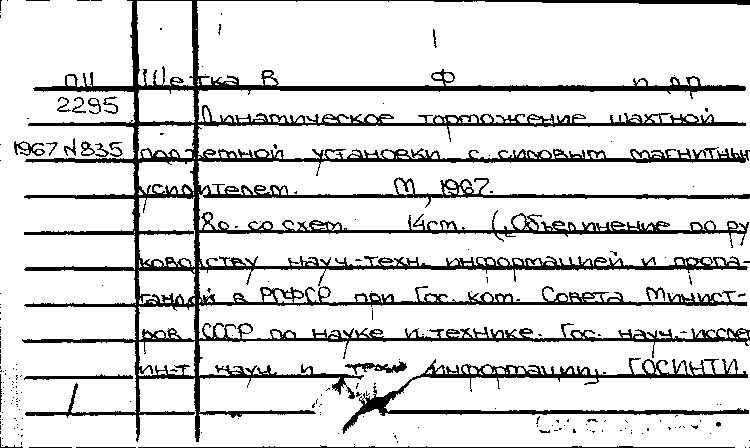 ПII Щетка, В Ф и др
2295 Динамическое торможение шахтной
1967 N835 подъемной установки с силовым магнитным
усилителем. М, 1967.
8о. со схем. 14ст. (Объединение по ру
ководству науч.-техн. информацией и пропа-
гандой в РСФСР при Гос. ком. Совета Минист-
ров СССР по науке и технике. Гос. науч.-исслед
ин-т науч и техн информации. ГОСИНТИ.